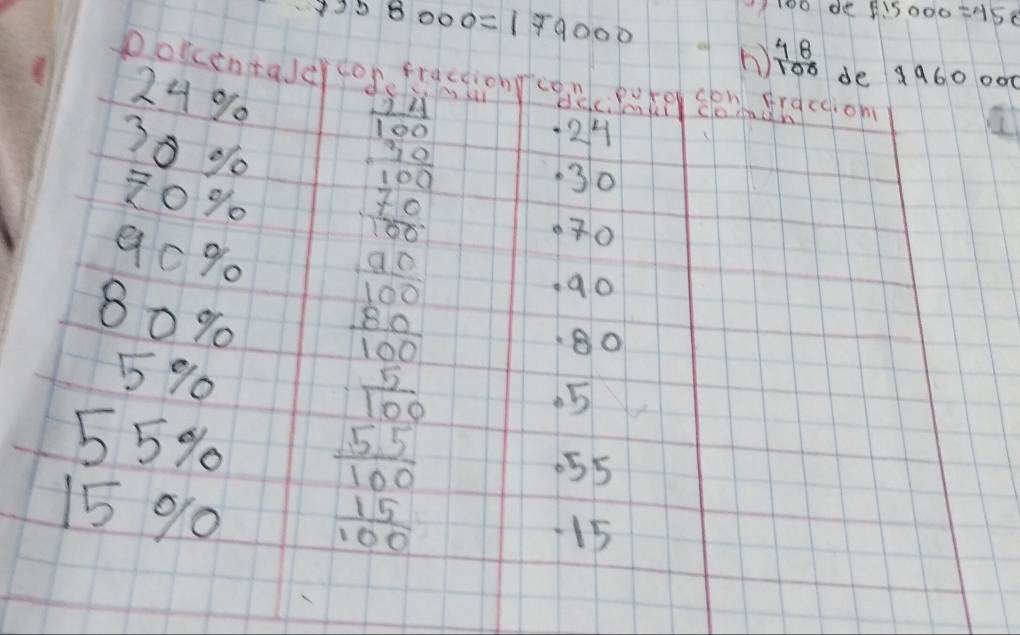 358 000=179000
100 de $15000=450
h) 48/100 de $960 000
Porcentaje con fracción decimal con punto decimal con fracción común
24% 24/100 .24
30% 30/100 .30
70% 70/100 .70
90% 90/100 .90
80% 80/100 .80
5% 5/100 .5
55% 55/100 .55
15% 15/100 .15